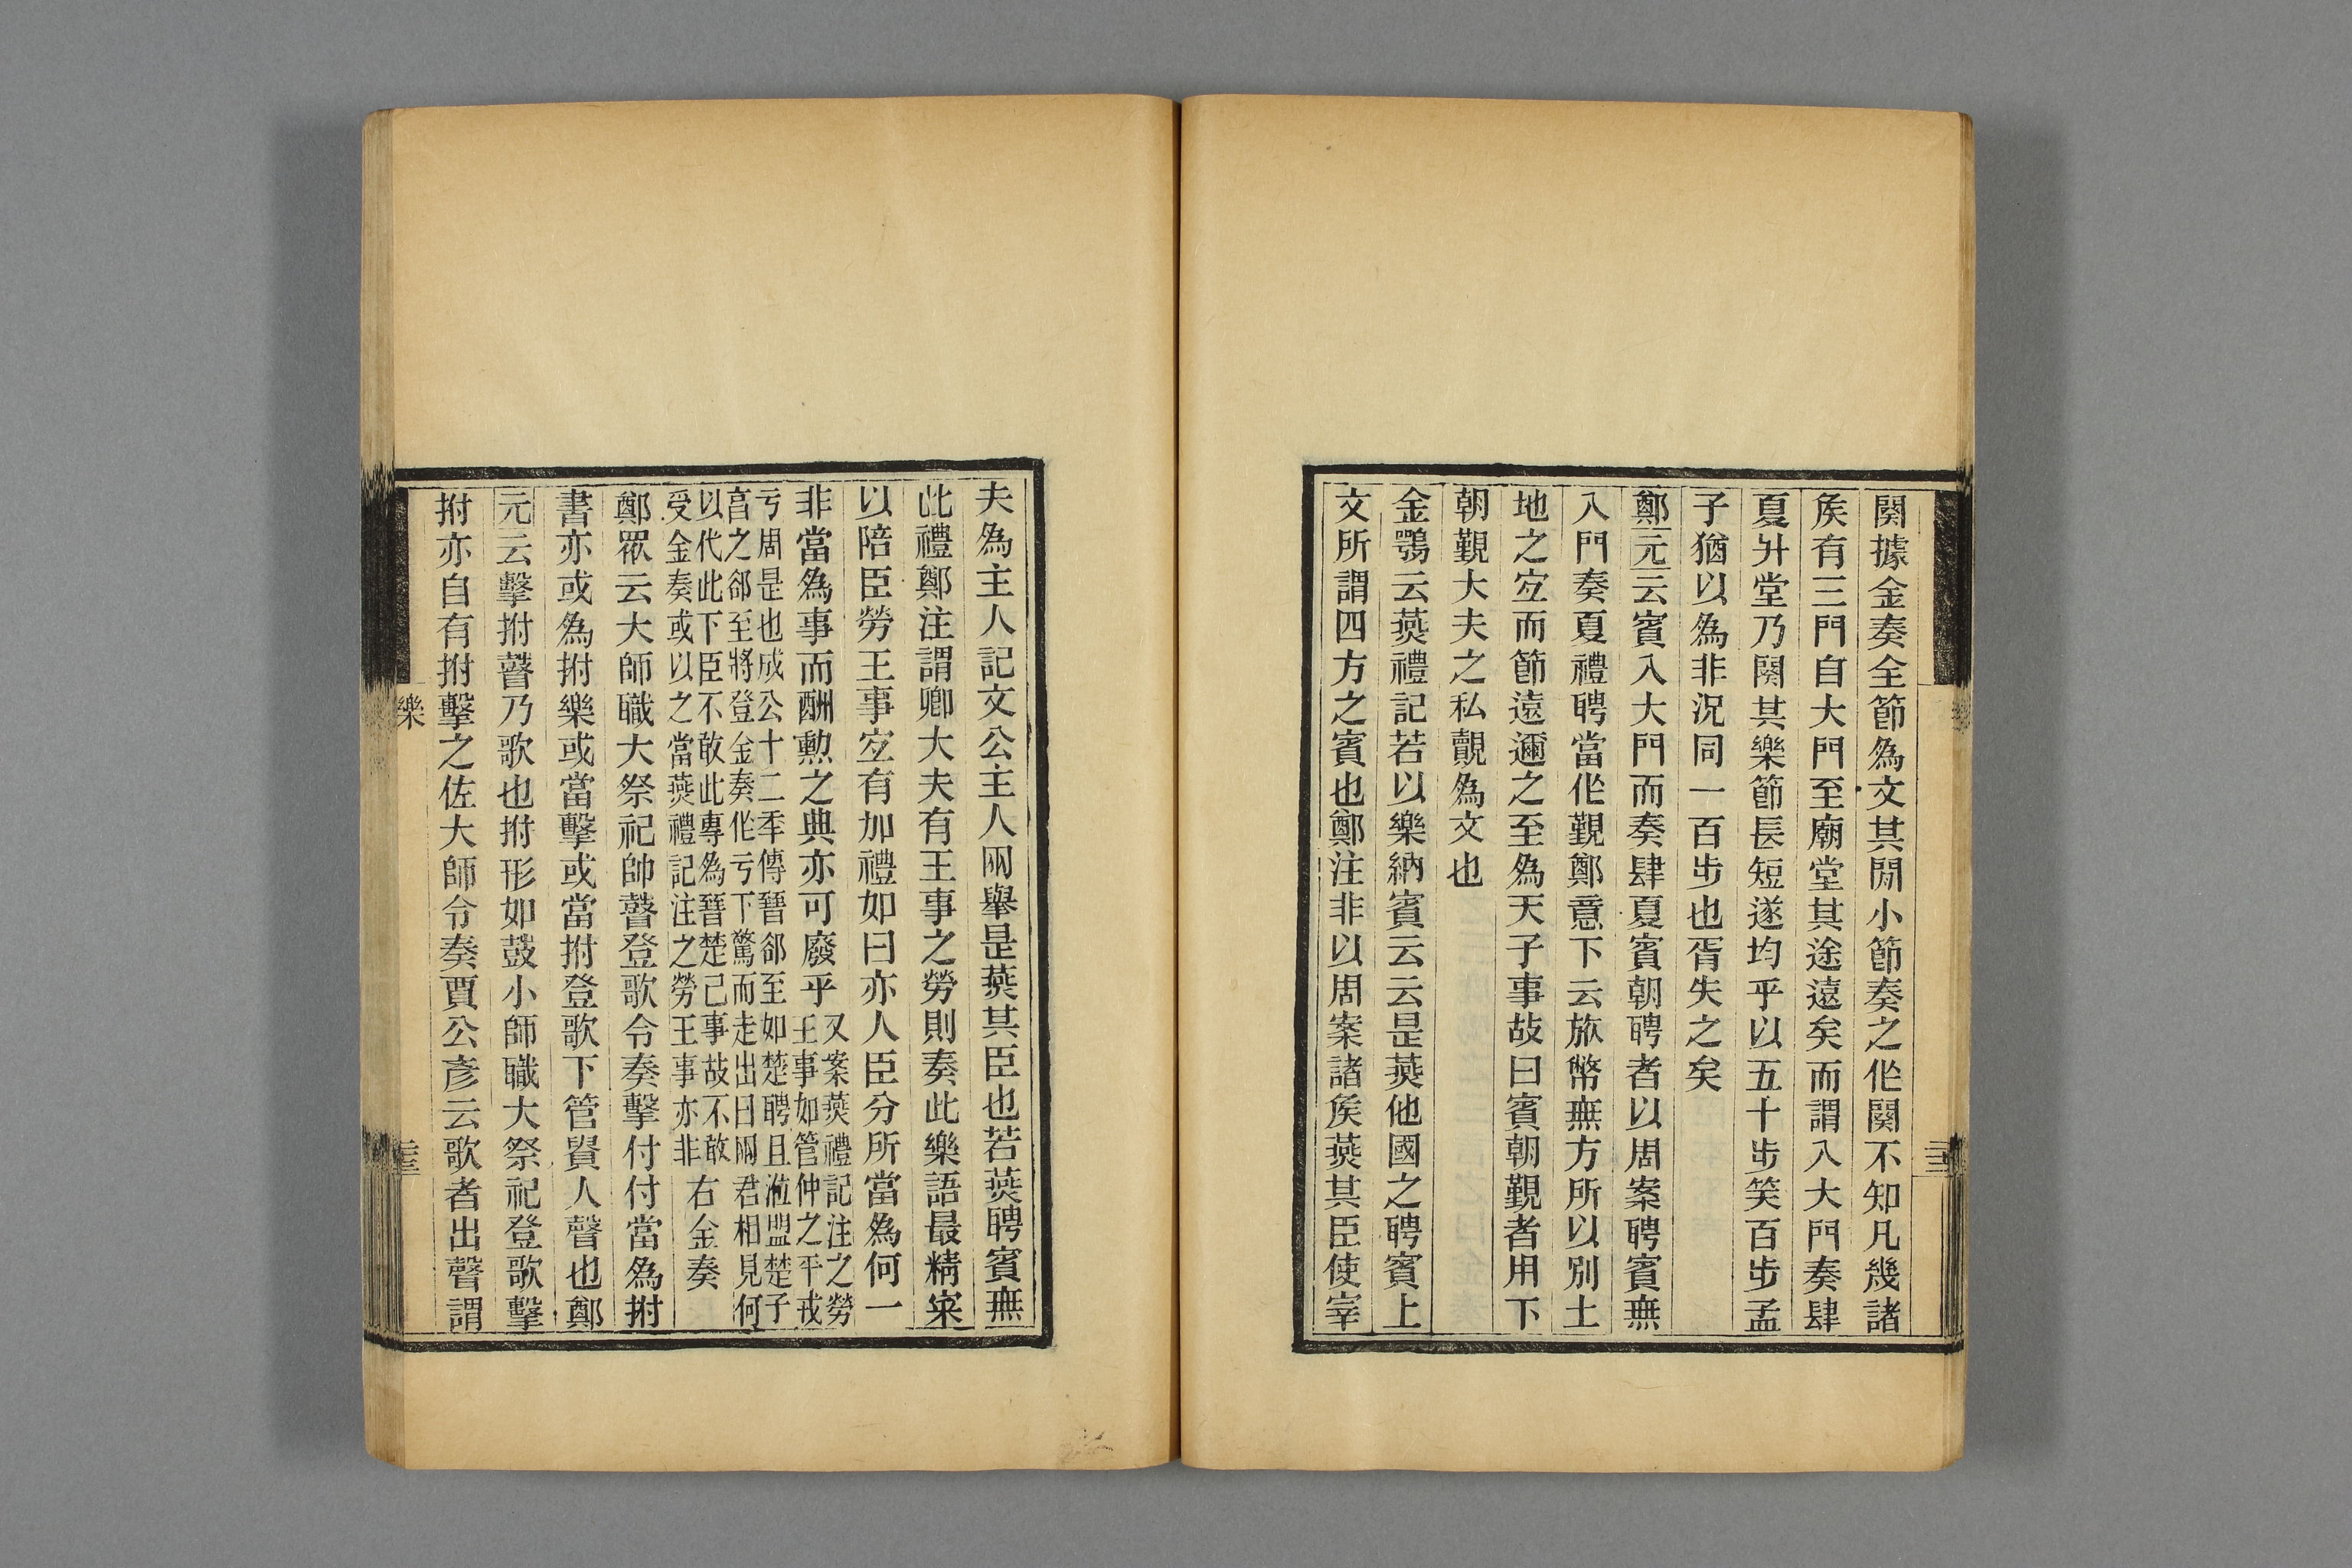 闋據金奏全節為文其閒小節奏之作闋不知凡幾諸
矦有三門自大門至廟堂其途遠矣而謂入大門奏肆
夏升堂乃闋其樂節長短遂均乎以五十步笑百步孟
子猶以為非況同一百步也胥失之矣
鄭元云賓入大門而奏肆夏賓朝聘者以周案聘賓無
入門奏夏禮聘當作覲鄭意下云旅幣無方所以別土
地之宐而節遠邇之至為天子事故曰賓朝覲者用下
朝覲大夫之私覿為文也
金鶚云燕禮記若以樂納賓云云是燕他國之聘賓上
文所謂四方之賓也鄭注非以周案諸矦燕其臣使宰
夫為主人記文公主人兩舉是燕其臣也若燕聘賓無
此禮鄭注謂卿大夫有王事之勞則奏此樂語最精宷
以陪臣勞王事宐有加禮如曰亦人臣分所當為何一
非當為事而酬勲之典亦可廢乎
又案燕禮記注之勞
王事如管仲之平戎
亏周是也成公十二秊傳晉郤至如楚聘且涖盟楚子
亯之郤至將登金奏作亏下驚而走出曰兩君相見何
以代此下臣不敢此專為晉楚己事故不敢
受金奏或以之當燕禮記注之勞王事亦非
右金奏
鄭眾云大師職大祭祀帥瞽登歌令奏擊付付當為拊
書亦或為拊樂或當擊或當拊登歌下管貴人聲也鄭
元云擊拊瞽乃歌也拊形如鼓小師職大祭祀登歌擊
拊亦自有拊擊之佐大師令奏賈公彥云歌者出聲謂
樂